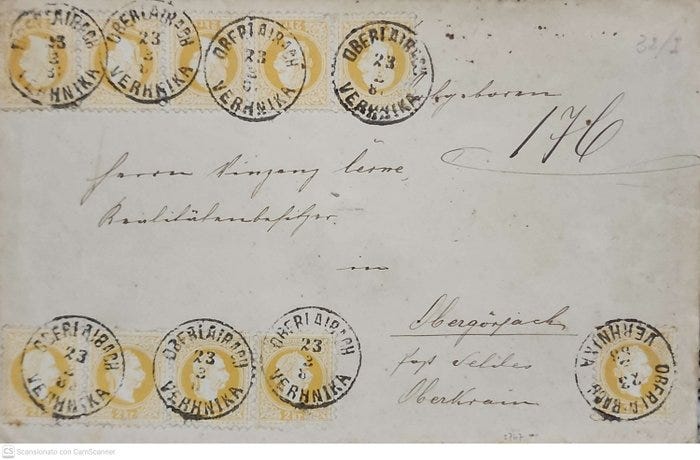 OBERLAIBACH 23 VERHNIKA
OBERLAIBACH 23 VERHNIKA
OBERLAIBACH 23 VERHNIKA
OBERLAIBACH 23 VERHNIKA
32/I
176
Herrn Vinzenz Černe,
Realitätenbesitzer
in
Obergörjach
Post Veldes
Oberkrain
OBERLAIBACH 23 VERHNIKA
OBERLAIBACH 23 VERHNIKA
OBERLAIBACH 23 VERHNIKA
OBERLAIBACH 23 VERHNIKA
2 kr.
2 kr.
CS Scansionato con CamScanner